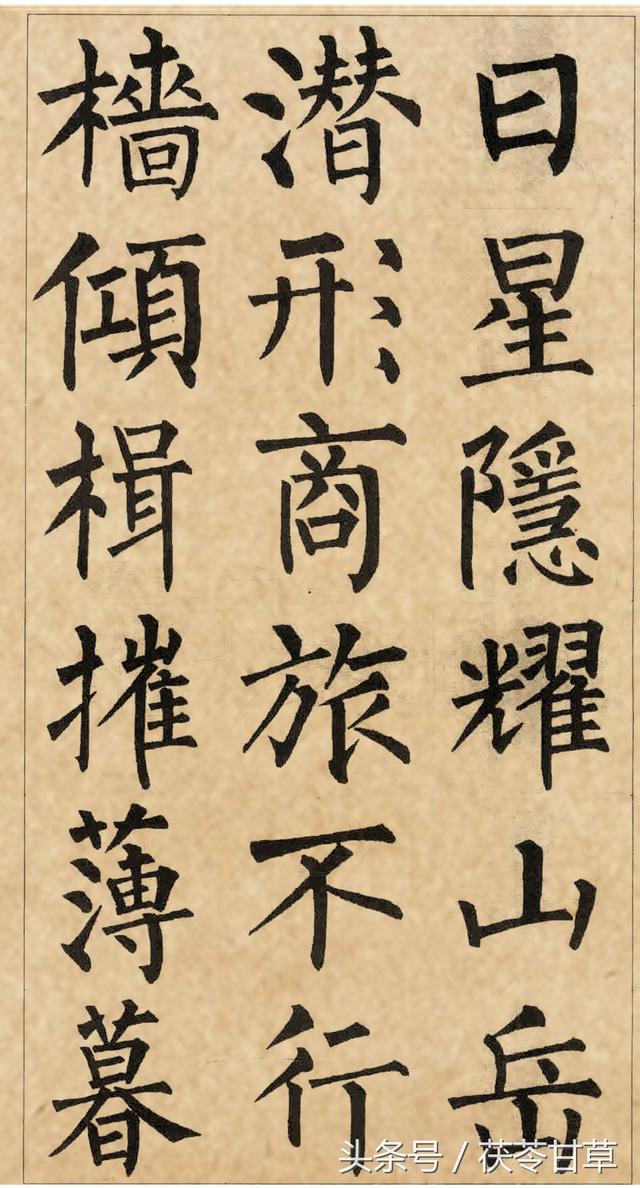 日星隱耀山岳
潜形商旅不行
檣傾楫摧薄暮
头条号 / 茯苓甘草